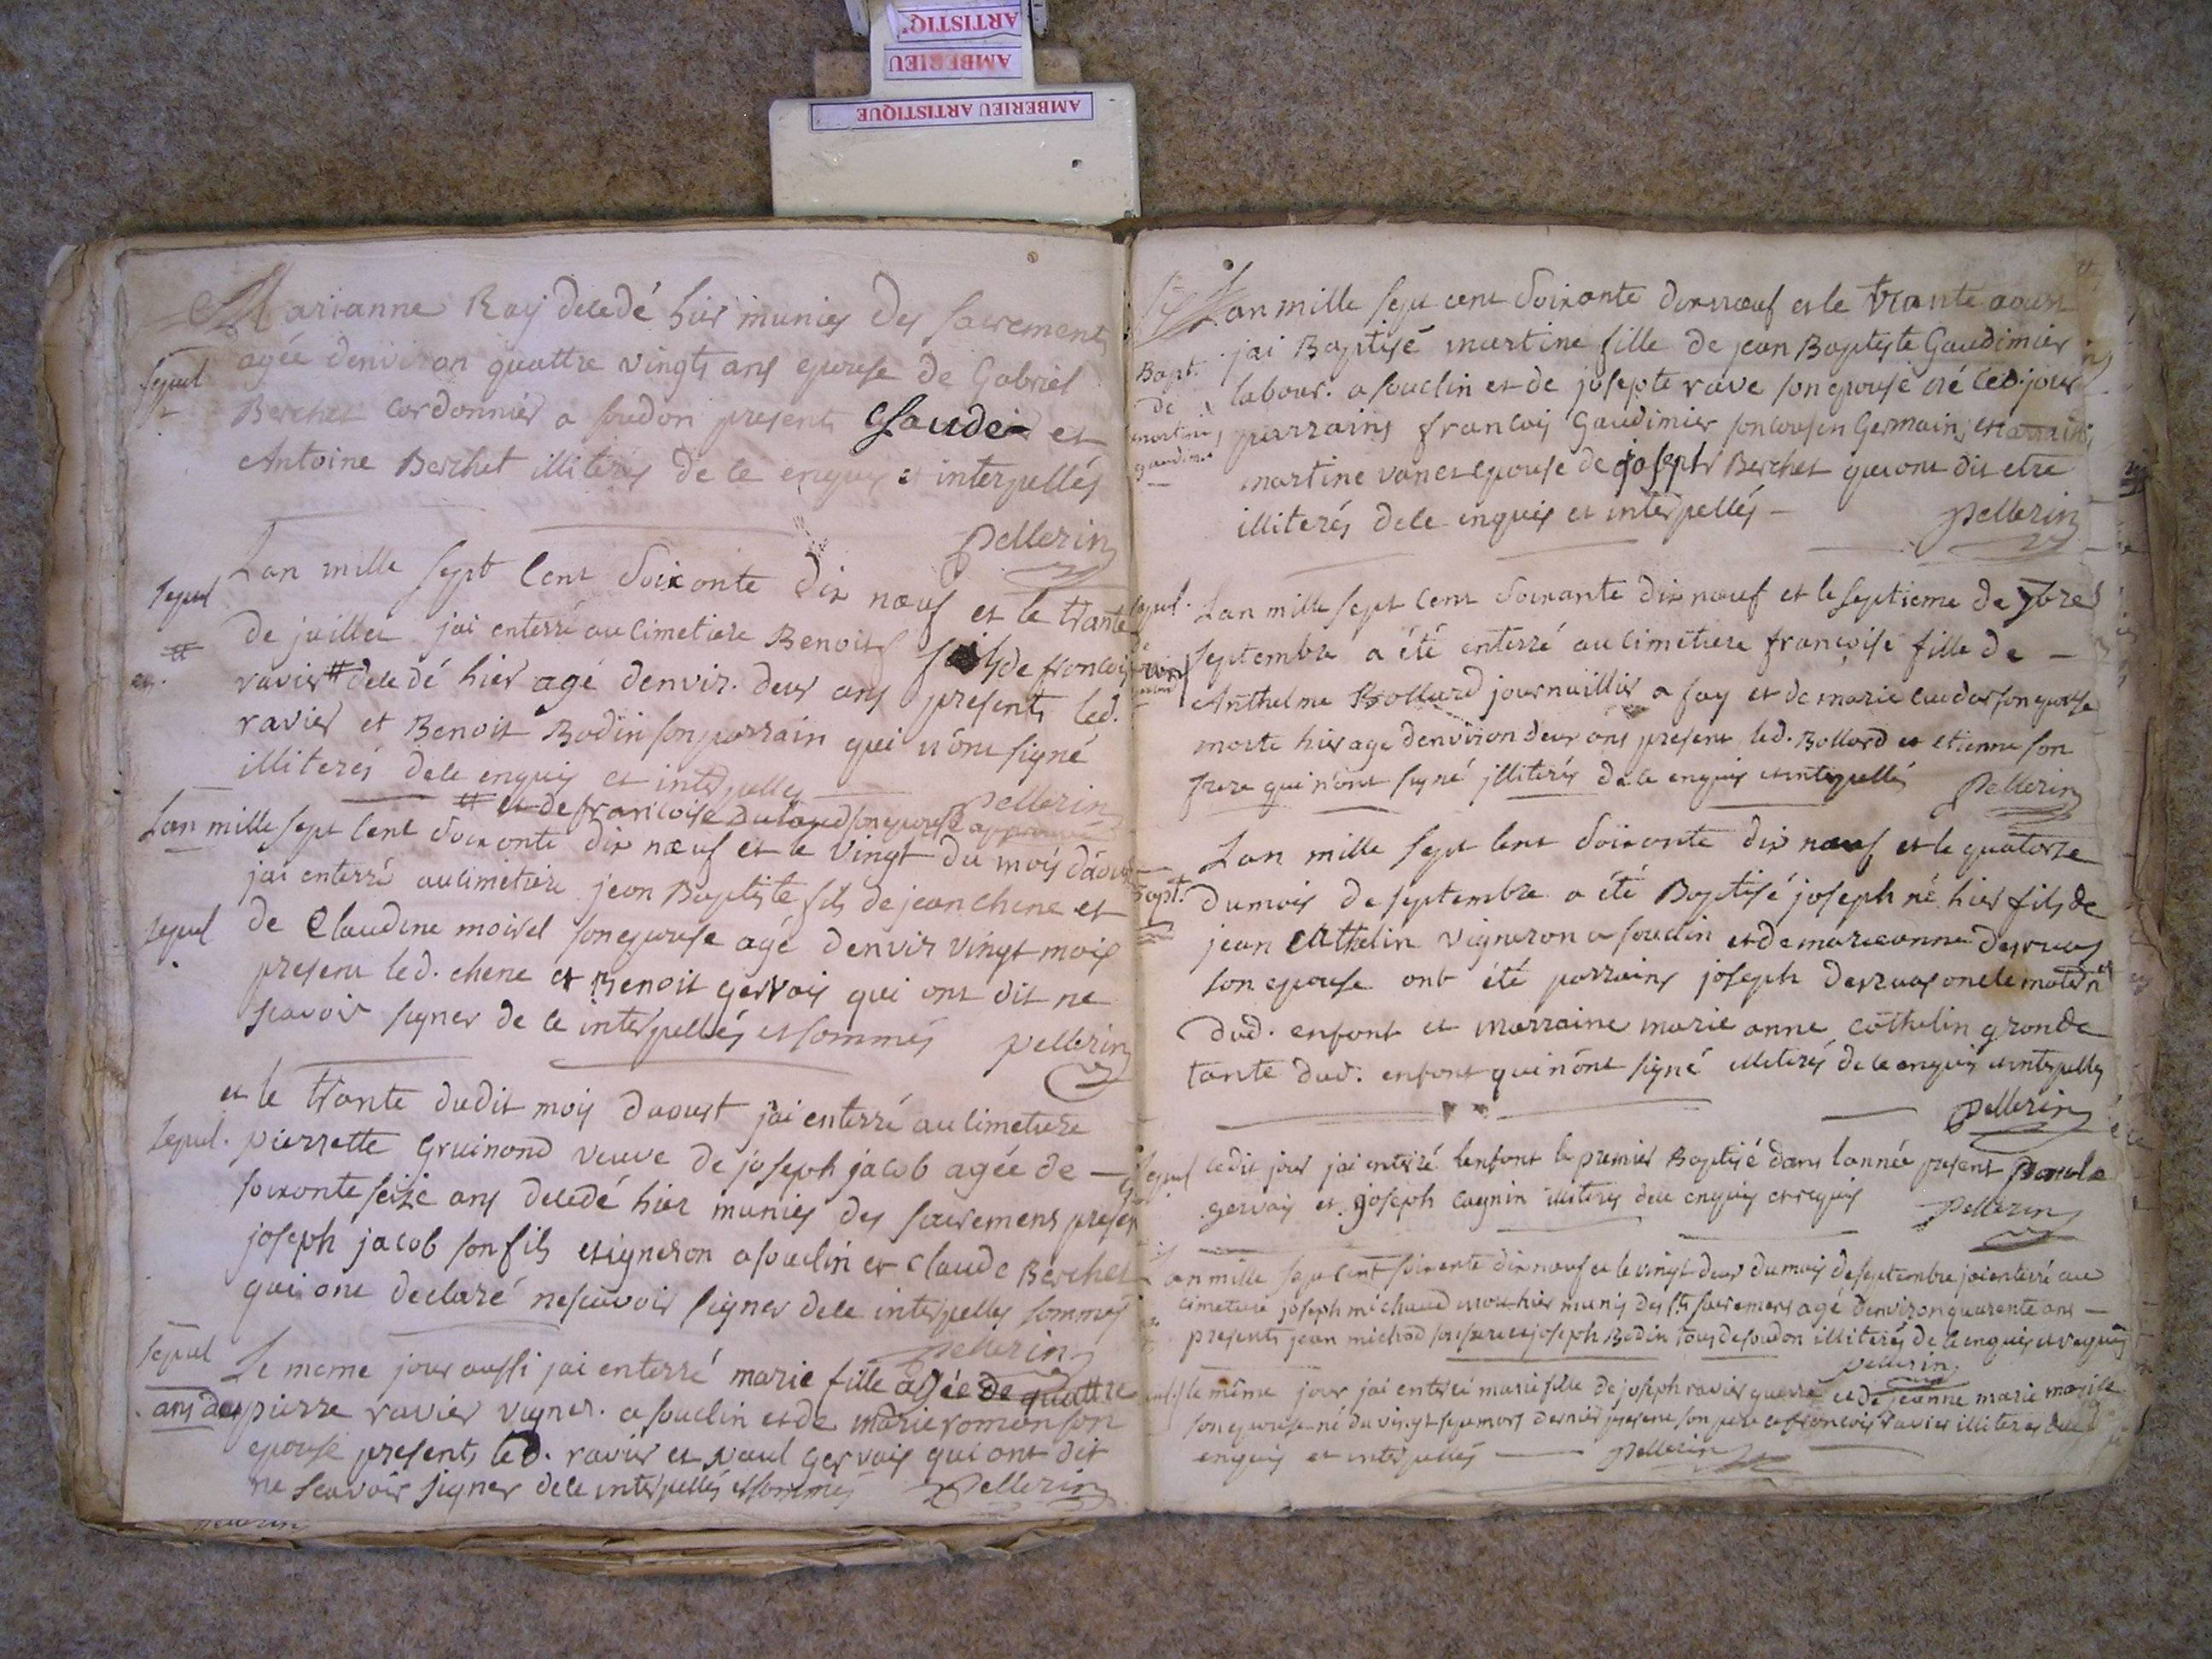 ARTISTIQ'
AMBERIEU
AMBERIEU ARTISTIQUE
Marianne Ray decedé hier munies des sacrements
sepul
agée denviron quattre vingts ans epouse de Gabriel
Berchet cordonnier a soudon presents Claude et
Antoine Berchet illiterés de ce enquis et interpellés
Pellerin
sepul
Lan mille sept cent soixante dix nœuf et le trante
de juillet jai enterré au cimetiere Benoit fils de francois
ravier # decedé hier agé denvir. deux ans presents led.
ravier et Benoit Bodin son parrain qui n'ont signé
illiterés de ce enquis et interpelles
Pellerin
# et de francoise Dutoud son epouse approuvé
Lan mille sept cent soixante dix nœuf et le vingt du mois daoust
jai enterré au cimetiere jean Baptiste fils de jean chene et
sepul
de Claudine moirel son epouse agé denvir vingt mois
present led. chene et Benoit gervais qui ont dit ne
scavoir signer de ce interpellés et sommés pellerin
et le trante dudit mois daoust jai enterré au cimetiere
sepul.
pierrette Gruinond veuve de joseph jacob agée de
soixante seize ans decedé hier munies des sacremens presen
joseph jacob son fils et vigneron a souclin et claude Berchet
qui ont declaré ne scavoir signer de ce interpelles sommes
Pellerin
sepul
Le meme jour aussi jai enterré marie fille agée de quattre
ans de pierre ravier vigner. a souclin et de marie romon son
epouse presents led. ravier et paul Gervais qui ont dit
ne scavoir signer de ce interpellés et sommés Pellerin
Lan mille sept cent soixante dix nœuf et le trante aoust
Bapt.
de
martine
gaudimier
jai Baptisé martine fille de jean Baptiste Gaudimier
labour. a souclin et de josepte rave son epouse né ced. jour
parrains francois Gaudimier son cousin Germain, marraine
martine vanet epouse de joseph Berchet qui ont dit etre
illiterés de ce enquis et interpellés
Pellerin
sepul.
Lan mille sept cent soixante dix nœuf et le septieme de 7bre
septembre a été enterré au cimetiere francoise fille de
Anthelme Bollard journaillier a fay et de marie son epouse
morte hier age denviron deux ans present led. Bollard et etienne son
frere qui n'ont signé illiterés de ce enquis et interpellés Pellerin
Lan mille sept cent soixante dix nœuf et le quatorze
Bapt.
du mois de septembre a été Baptisé joseph né hier fils de
jean Cathelin vigneron a souclin et de marieanne desruas
son epouse ont été parrains joseph desruas oncle matern
dud. enfant et marraine marie anne cathelin grande
tante dud. enfant qui n'ont signé illiterés de ce enquis et interpellés
Pellerin
sepul
cedit jour jai enterré lenfant le premier Baptisé dans lannée present paul
gervais et joseph cagnin illiteres de ce enquis et requis
Pellerin
Lan mille sept cent soixante dix nœuf et le vingt deux du mois de septembre jai enterré au
cimetiere joseph michaud mort hier munis des sts sacremens agé denviron quarente ans
presents jean michod son frere et joseph Bodin tous de soudon illiterés de ce enquis et requis
pellerin
le même jour jai enterré marie fille de joseph ravier et de jeanne marie
son epouse né du vingt sept mars dernier present son pere et francois ravier illiteres de ce
enquis et interpellés Pellerin